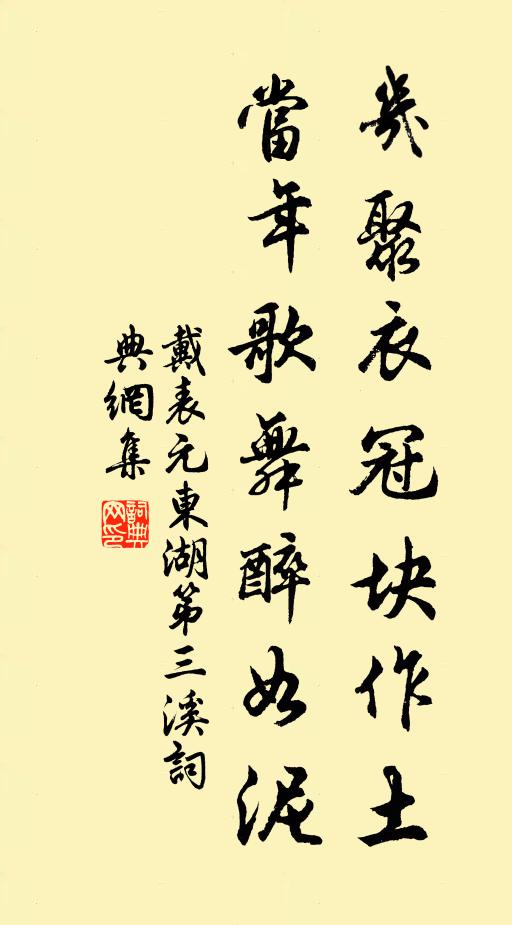 幾聚衣冠块作土
當年歌舞醉如泥
戴表元東湖第三溪詞
典網集
詞典
网印